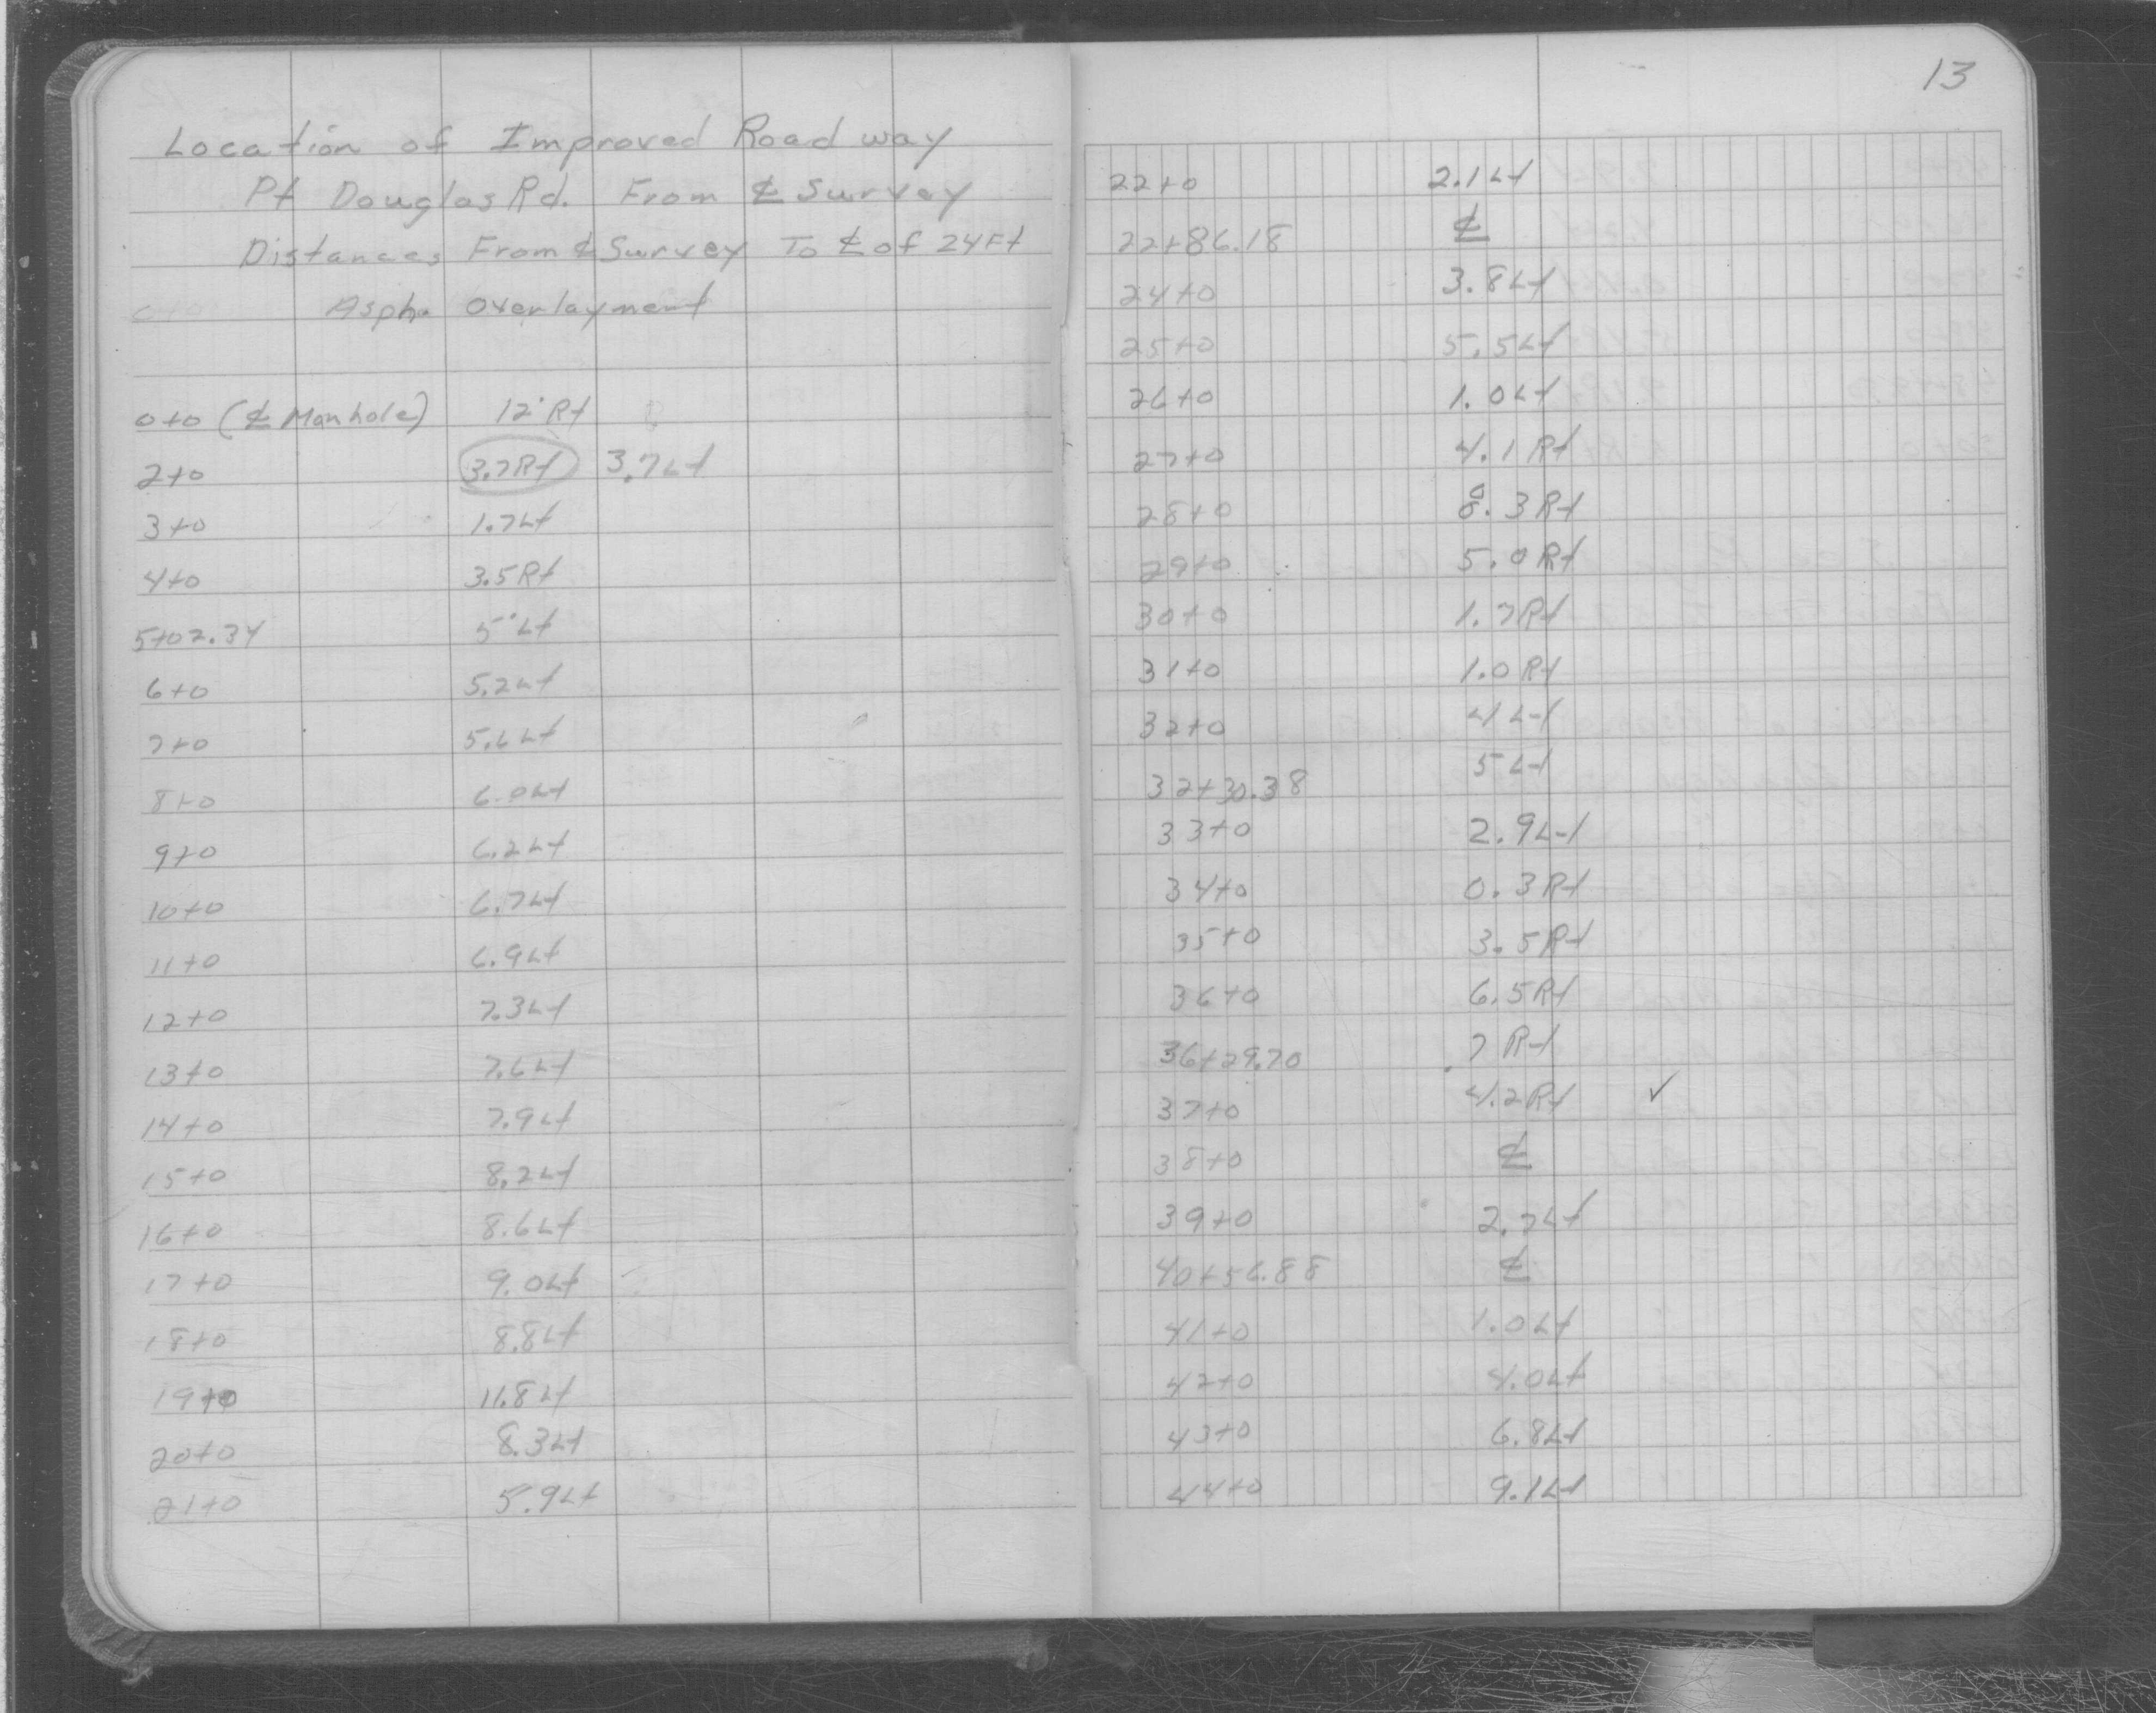 Location of Improved Roadway
Pt Douglas Rd. From ℄ Survey
Distances From ℄ Survey To ℄ of 24Ft
0+0 Aspha Overlayment
0+0 (℄ Manhole) 12' Rt
2+0 3.7Rt 3.7Lt
3+0 1.7Lt
4+0 3.5Rt
5+02.34 5'Lt
6+0 5.2Lt
7+0 5.6Lt
8+0 6.0Lt
9+0 6.2Lt
10+0 6.7Lt
11+0 6.9Lt
12+0 7.3Lt
13+0 7.6Lt
14+0 7.9Lt
15+0 8.2Lt
16+0 8.6Lt
17+0 9.0Lt
18+0 8.8Lt
19+0 11.8Lt
20+0 8.3Lt
21+0 5.9Lt
13
22+0 2.1Lt
22+86.18 ℄
24+0 3.8Lt
25+0 5.5Lt
26+0 1.0Lt
27+0 4.1Rt
28+0 8.3Rt
29+0 5.0Rt
30+0 1.7Rt
31+0 1.0Rt
32+0 4Lt
32+30.38 5Lt
33+0 2.9Lt
34+0 0.3Rt
35+0 3.5Rt
36+0 6.5Rt
36+29.70 7Rt
37+0 4.2Rt ✓
38+0 ℄
39+0 2.7Lt
40+56.88 ℄
41+0 1.0Lt
42+0 4.0Lt
43+0 6.8Lt
44+0 9.1Lt